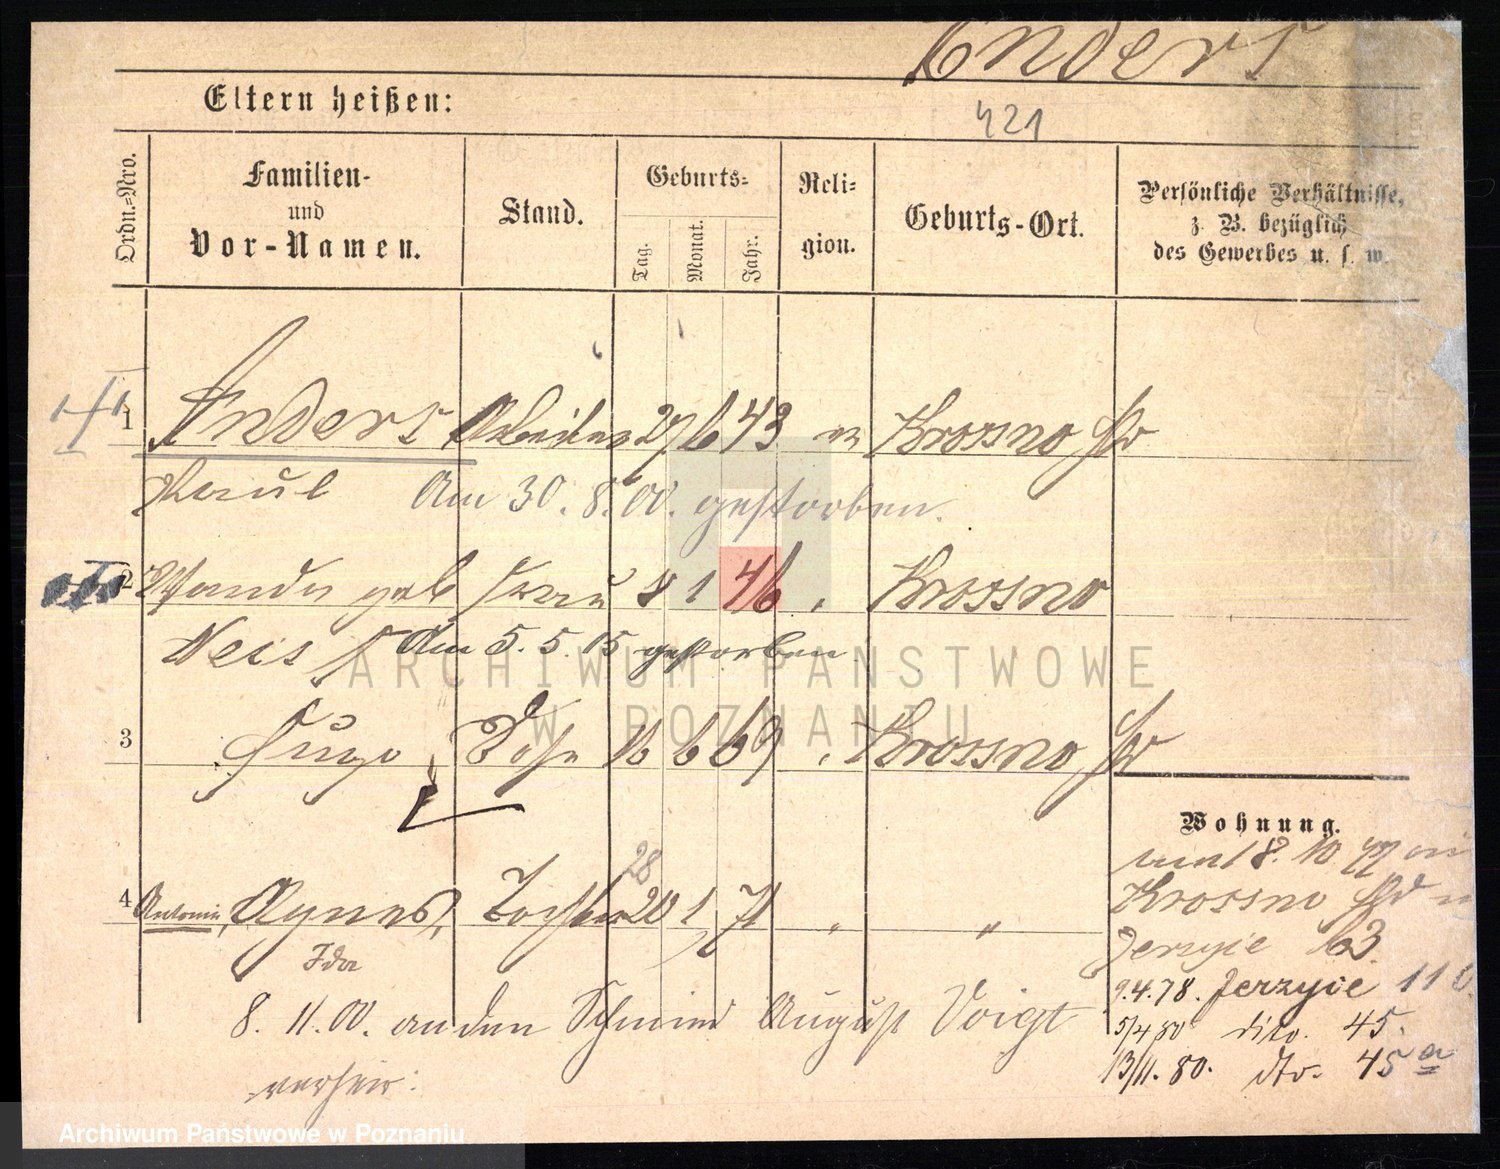 Anders
Eltern heißen:
421
Ordn.=Nro.
Familien-
und
Vor-Namen.
Stand.
Geburts=
Tag.
Monat.
Jahr.
Reli=
gion.
Geburts-Ort.
Persönliche Verhältnisse,
z. B. bezüglich
des Gewerbes u. s. w.
1 Anders Arbeiter 27 6 43 Krossno
Paul Am 30. 8. 00. gestorben.
2 Wanda geb Frau 8 1 46 " Krossno
Neis Am 5. 5. 15 gestorben
ARCHIWUM PAŃSTWOWE
W POZNANIU
3 Hugo Sohn 16 6 69 " Krossno
Wohnung.
8. 10 77
28
4 Antonie, Agnes, Tochter 20 1 71 " "
Krossno
Ida
Jerzyce 63
8. 11. 00. an den Schmied August Voigt
verheir:
9.4.78. Jerzyce 11
5/4 80 dito. 45.
13/11. 80. dto. 45 a
Archiwum Państwowe w Poznaniu